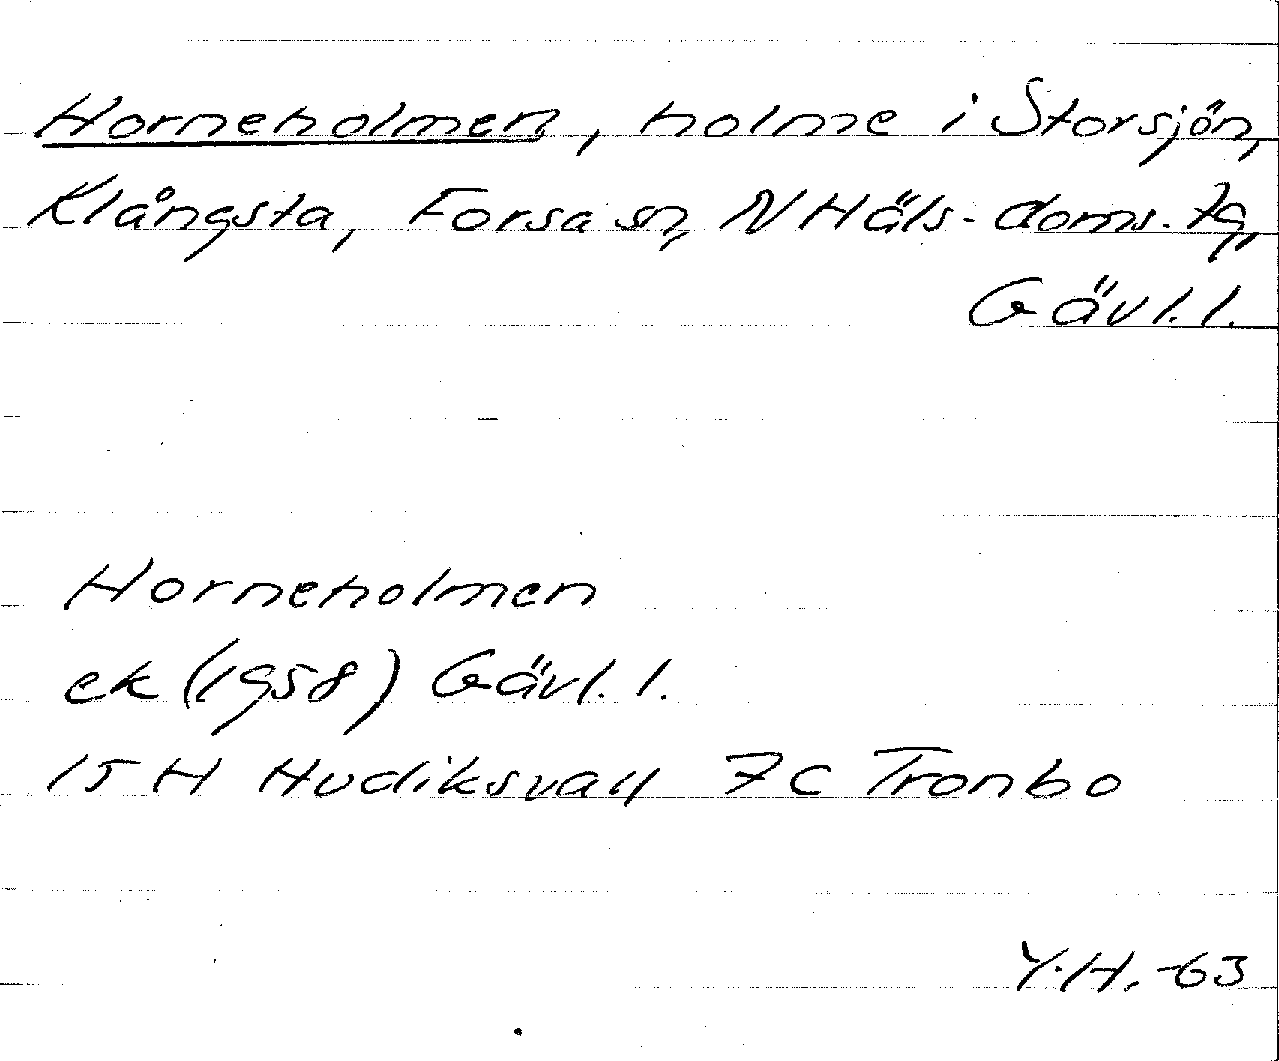 Horneholmen, holme i Storsjön,
Klångsta, Forsa sn, N Häls. doms. tg,
Gävl. l.
Horneholmen
ek (1958) Gävl. l.
15 H Hudiksvall 7C Tronbo
Y.H. -63